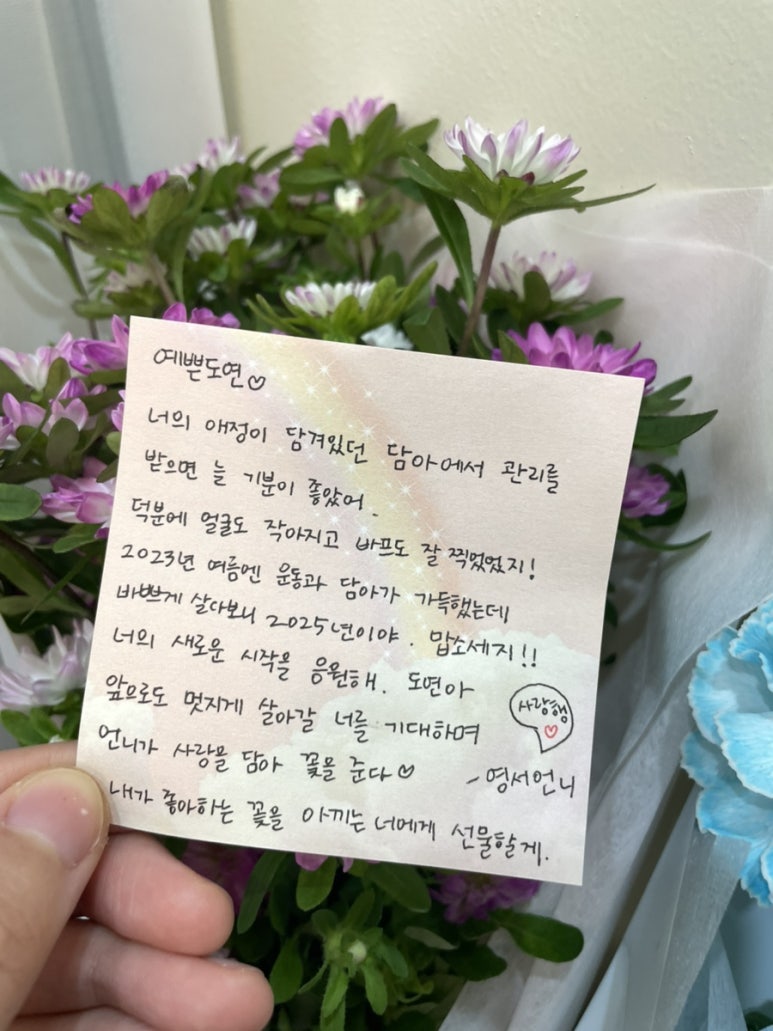 예쁜도연♡
너의 애정이 담겨있던 담아에서 관리를
받으면 늘 기분이 좋았어.
덕분에 얼굴도 작아지고 바프도 잘 찍었었지!
2023년 여름엔 운동과 담아가 가득했는데
바쁘게 살다보니 2025년이야. 맙소세지!!
너의 새로운 시작을 응원해. 도연아
앞으로도 멋지게 살아갈 너를 기대하며
사랑행♡
언니가 사랑을 담아 꽃을 준다♡
-영서언니
내가 좋아하는 꽃을 아끼는 너에게 선물할게.